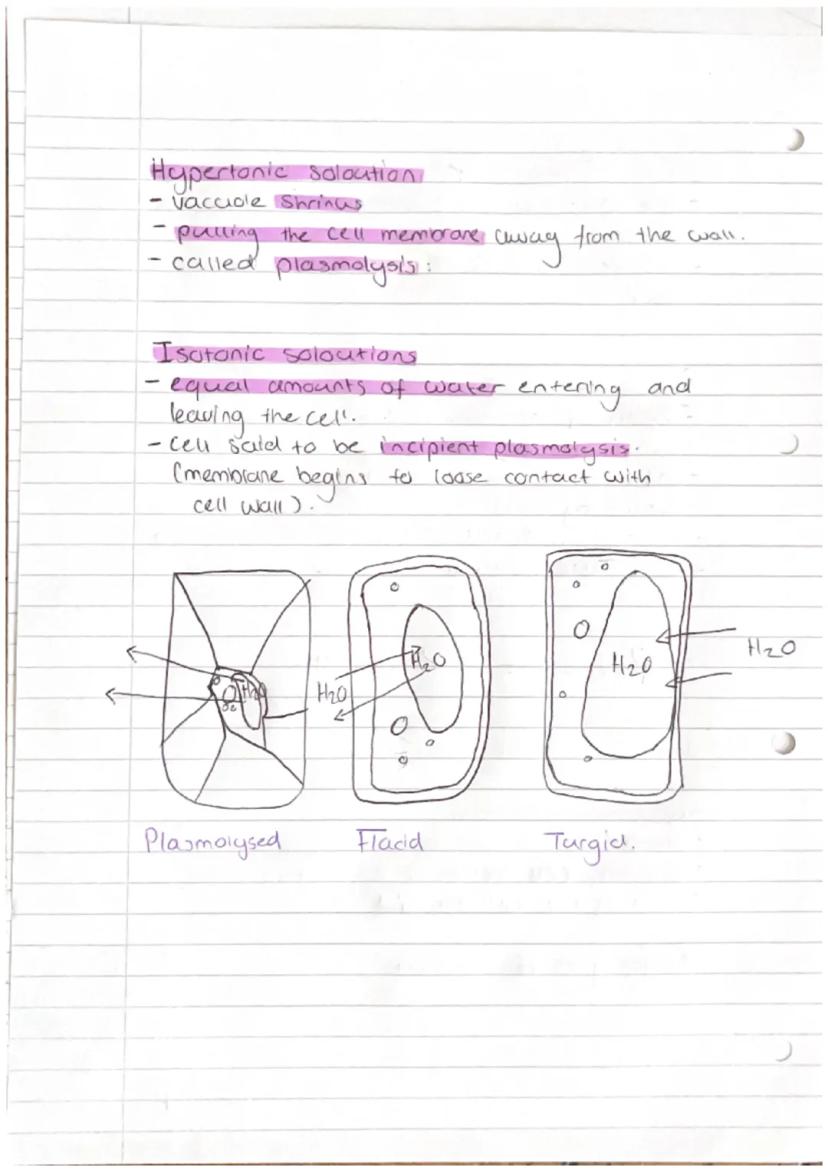 Hypertonic soloution
- vacuole shrinks
- pulling the cell membrane away from the wall.
- called plasmolysis.
Isotonic soloutions
- equal amounts of water entering and
leaving the cell.
- cell said to be incipient plasmolysis.
(membrane begins to loose contact with
cell wall).
H₂O H₂O H₂O H₂O H₂O
Plasmolysed Flacid Turgid.